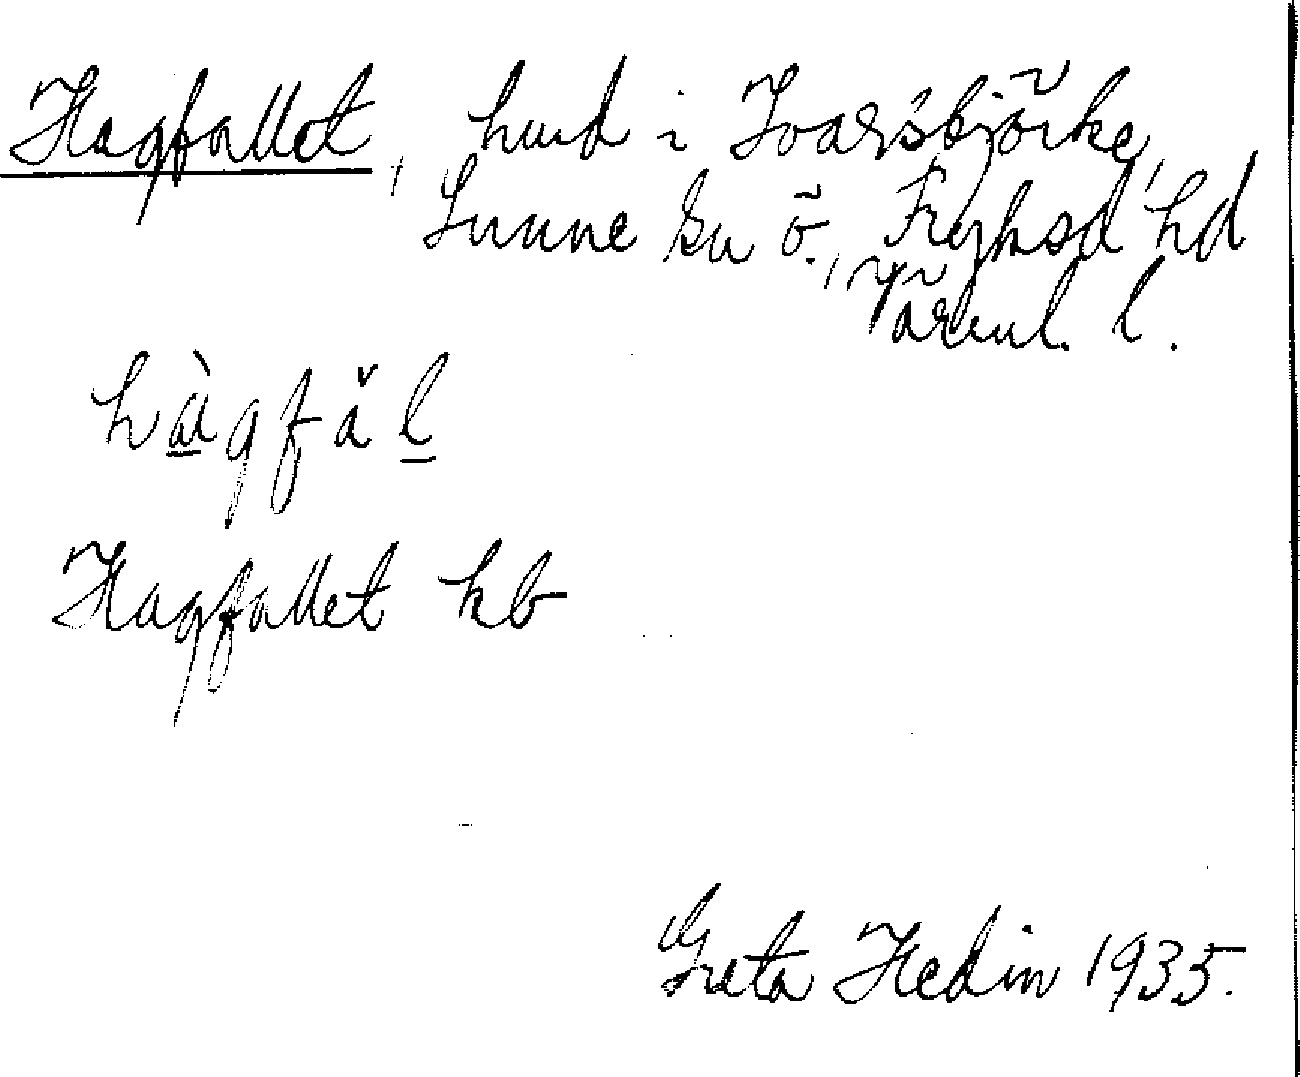 Hagfallet, hmd i Ivarsbjörke,
Sunne sn ö., Fryksd hd
Värml. l.
hàgfǎl
Hagfallet kb
Greta Hedin 1935.